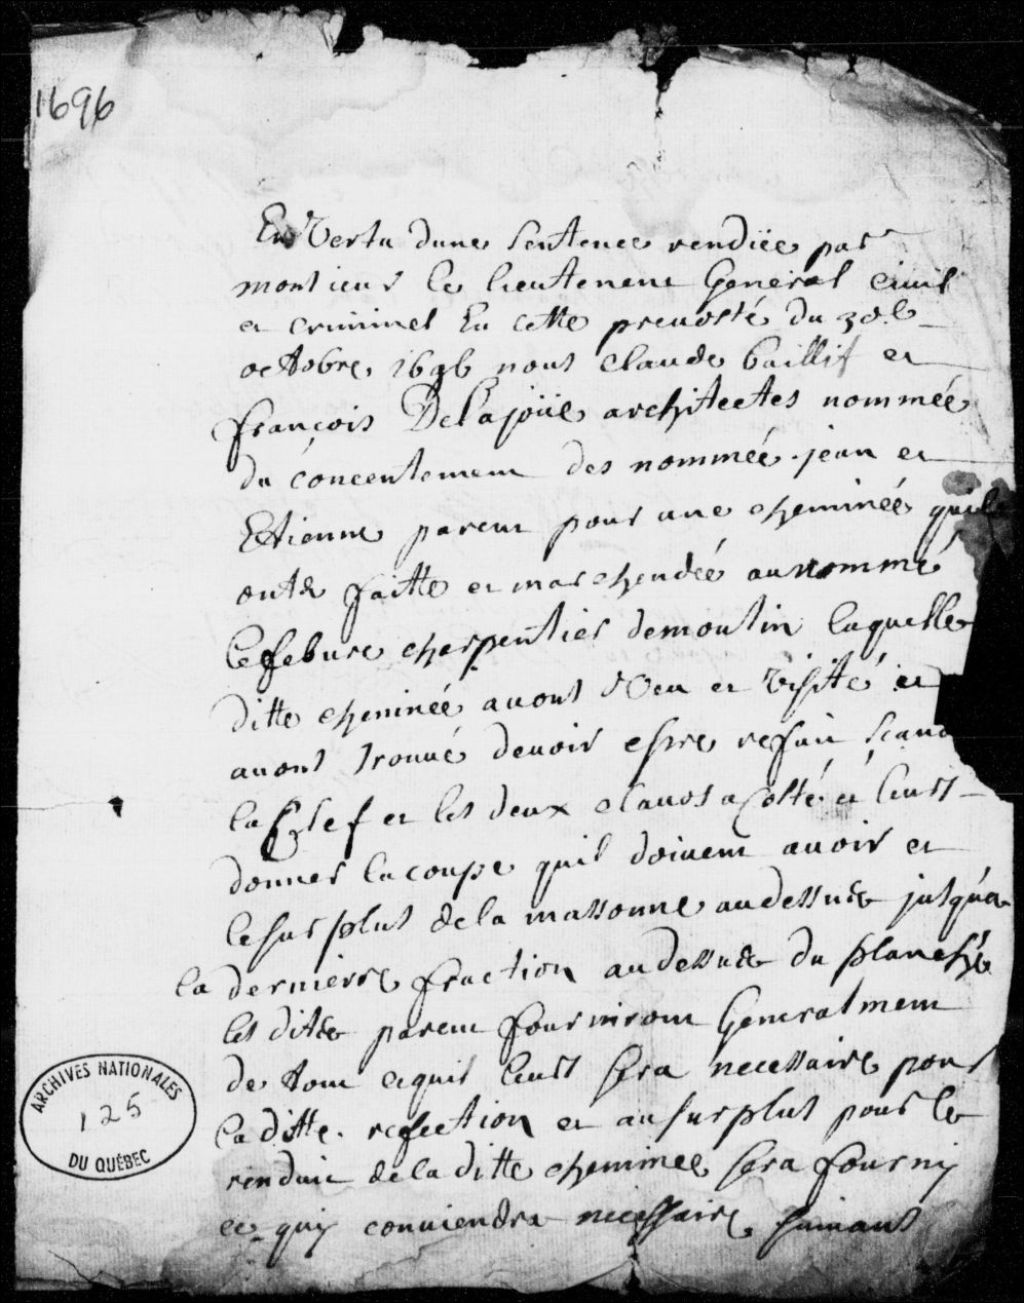 1696
En Vertu dune sentence rendüe par
monsieur le lieutenent General ciuil
et criminel En cette preuosté du 30.e
octobre 1696 nous Claude baillif et
françois Delajoüe architectes nommée
du concentement des nommée jean et
Etienne parent pour une cheminée quils
onts faitte et marchendée au nommé
Lefebure charpentier demoulin laquelle
ditte cheminée auons Veu et visité et
auons trouué deuoir estre refait
la Clef et les deux clauos a costé et leurs
donner la coupe quil doiuent auoir et
le surplus de la massonne audessus jusqua
la derniere fraction audessus du planché
les dits parent fourniront Generalment
de tout cequis leurs sera necessaire pour
la ditte refection et au surplus pour le
renduit de la ditte cheminee sera fourny
ce quy conuiendra necessaire suiuant
ARCHIVES NATIONALES
125
DU QUÉBEC